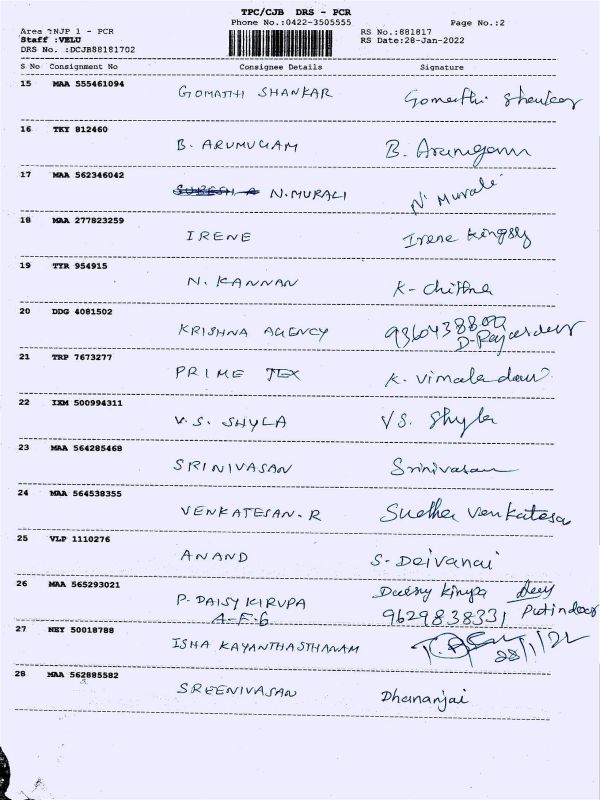 TPC/CJB DRS - PCR
Phone No.:0422-3505555 Page No.:2
Area :NJP 1 - PCR RS No.:881817
Staff :VELU RS Date:28-Jan-2022
DRS No. :DCJB88181702
S No Consignment No Consignee Details Signature
15 MAA 555461094 GOMATHI SHANKAR Gomathi Shankar
16 TKY 812460 B. ARUMUGAM B. Arumugam
17 MAA 562346042 SURESH A N.MURALI N. Murali
18 MAA 277823259 IRENE Irene Kingsly
19 TYR 954915 N. KANNAN K- Chithra
20 DDG 4081502 KRISHNA AGENCY 9360438802
21 TRP 7673277 PRIME TEX K. Vimala devi
22 IXM 500994311 V.S. SHYLA VS. Shyla
23 MAA 564285468 SRINIVASAN Srinivasan
24 MAA 564538355 VENKATESAN. R Sudha Venkatesa
25 VLP 1110276 ANAND S. Deivanai
26 MAA 565293021 P. DAISY KIRUPA Daisy Kirupa
A-F-6 9629838331
27 NEY 50018788 ISHA KAYANTHASTHANAM 28/1/22
28 MAA 562885582 SREENIVASAN Dhananjai